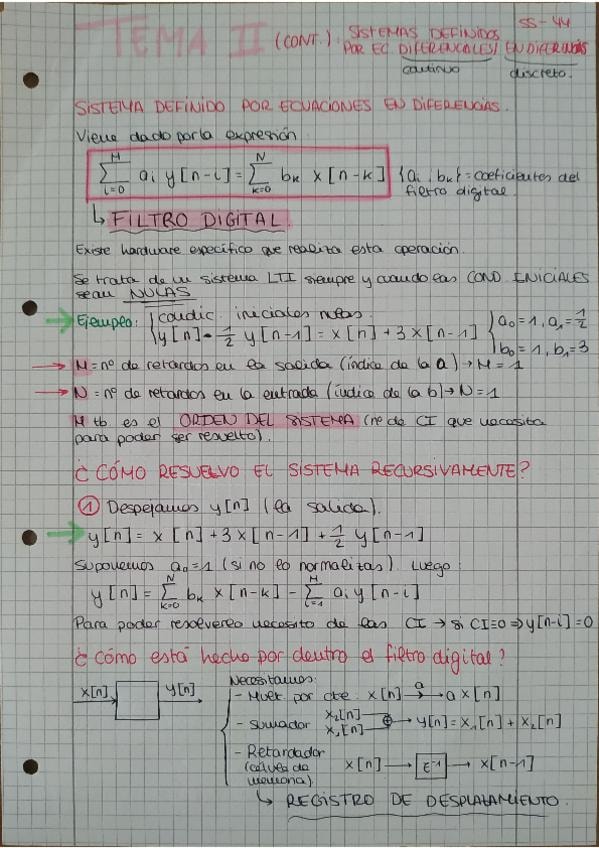 TEMA II (CONT.): SISTEMAS DEFINIDOS SS-44
POR EC DIFERENCIALES/ EN DIFERENCIAS
continuo discreto.
SISTEMA DEFINIDO POR ECUACIONES EN DIFERENCIAS.
Viene dado por la expresión
∑_{i=0}^{M} ai y[n-i] = ∑_{k=0}^{N} bk x[n-k] {ai, bk} = coeficientes del
filtro digital.
↳ FILTRO DIGITAL.
Existe hardware específico que realiza esta operación.
Se trata de un sistema LTI siempre y cuando las COND. INICIALES
sean NULAS
→ Ejemplo: { condic. iniciales nulas.
y[n] - 1/2 y[n-1] = x[n] + 3x[n-1] { a0=1, a1=1/2
b0=1, b1=3
→ M = nº de retardos en la salida (índice de la a) → M = 1
→ N = nº de retardos en la entrada (índice de la b) → N = 1
M tb es el ORDEN DEL SISTEMA (nº de CI que necesita
para poder ser resuelto).
¿CÓMO RESUELVO EL SISTEMA RECURSIVAMENTE?
① Despejamos y[n] (la salida).
→ y[n] = x[n] + 3x[n-1] + 1/2 y[n-1]
Suponemos a0=1 (si no lo normalizas). Luego:
y[n] = ∑_{k=0}^{N} bk x[n-k] - ∑_{i=1}^{M} ai y[n-i]
Para poder resolverlo necesito de las CI → si CI=0 ⇒ y[n-i]=0
¿Cómo está hecho por dentro el filtro digital?
x[n] y[n] Necesitamos:
- Mult. por cte. x[n] →a→ a x[n]
- Sumador x2[n] x1[n] ⊕ → y[n] = x1[n] + x2[n]
- Retardador
(célula de
memoria). x[n] → z⁻¹ → x[n-1]
↳ REGISTRO DE DESPLAZAMIENTO.